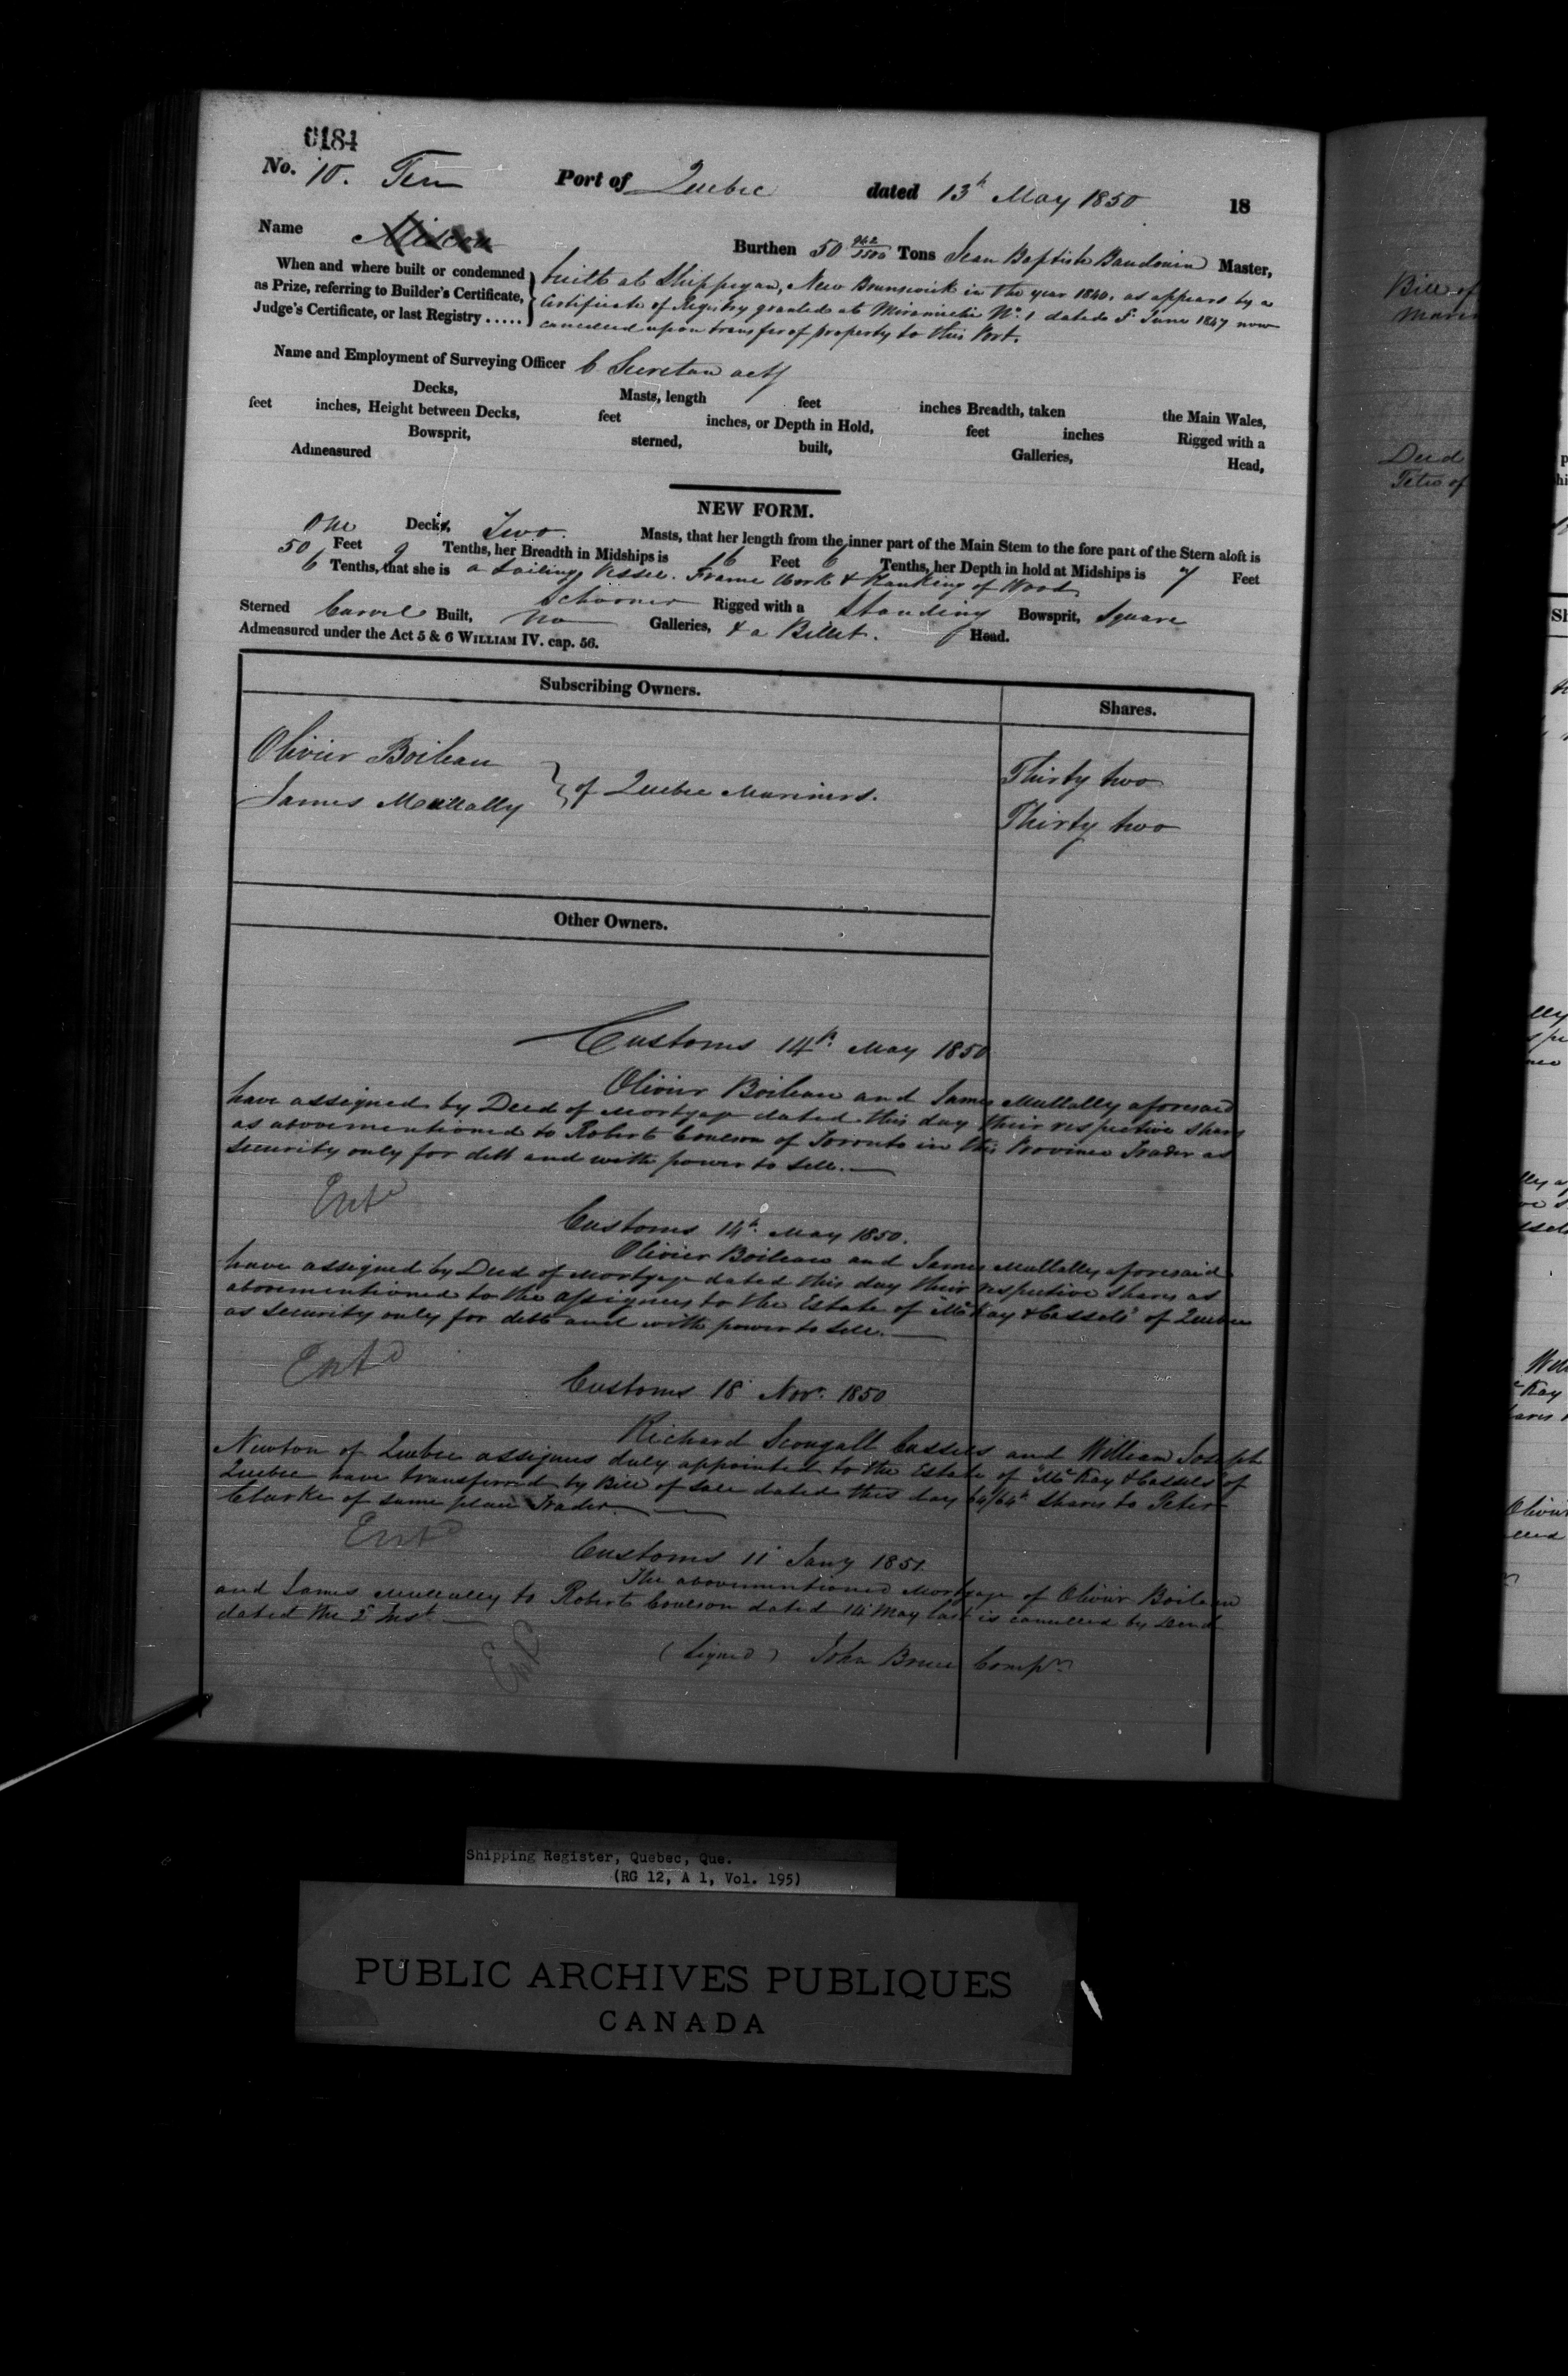 0184
No. 10. Ten Port of Quebec dated 13th May 1850 18
Name Miscou Burthen 50 962/3500 Tons Jean Baptiste Baudouin Master,
When and where built or condemned as Prize, referring to Builder's Certificate, Judge's Certificate, or last Registry .....
built at Shippegan, New Brunswick in the year 1840. as appears by a
Certificate of Registry granted at Miramichi No. 1 dated 5 June 1847 now
cancelled upon transfer of property to this Port.
Name and Employment of Surveying Officer C Secretan actg
Decks, Masts, length feet inches Breadth, taken the Main Wales,
feet inches, Height between Decks, feet inches, or Depth in Hold, feet inches Rigged with a
Bowsprit, sterned, built, Galleries, Head,
Admeasured
NEW FORM.
One Deck, Two Masts, that her length from the inner part of the Main Stem to the fore part of the Stern aloft is
50 Feet 9 Tenths, her Breadth in Midships is 16 Feet 6 Tenths, her Depth in hold at Midships is 7 Feet
6 Tenths, that she is a Sailing Vessel. Frame Work & Planking of Wood
Schooner Rigged with a Standing Bowsprit, Square
Sterned Carvel Built, no Galleries, & a Billet. Head.
Admeasured under the Act 5 & 6 WILLIAM IV. cap. 56.
Subscribing Owners. Shares.
Olivier Boileau Thirty two
James Mullally } of Quebec Mariners. Thirty two
Other Owners.
Customs 14th May 1850
Olivier Boileau and James Mullally aforesaid
have assigned by Deed of Mortgage dated this day their respective shares
as abovementioned to Robert Coulson of Toronto in this Province Trader as
security only for debt and with power to sell.
Entd
Customs 14th May 1850.
Olivier Boileau and James Mullally aforesaid
have assigned by Deed of Mortgage dated this day their respective shares as
abovementioned to the assignees to the Estate of "McKay & Cassels" of Quebec
as security only for debt and with power to sell.
Entd
Customs 18 Novr. 1850
Richard Scougall Cassels and William Joseph
Newton of Quebec assignees duly appointed to the Estate of "McKay & Cassels" of
Quebec have transferred by Bill of Sale dated this day 64/64th shares to Peter
Clarke of same place Trader.
Entd
Customs 11 Jany 1851.
The abovementioned Mortgage of Olivier Boileau
and James Mullally to Robert Coulson dated 14 May last is cancelled by Deed
dated the 2d Inst.
Entd
(Signed) John Bruce Compr.
Bill of
Deed
Shipping Register, Quebec, Que.
(RG 12, A 1, Vol. 195)
PUBLIC ARCHIVES PUBLIQUES
CANADA